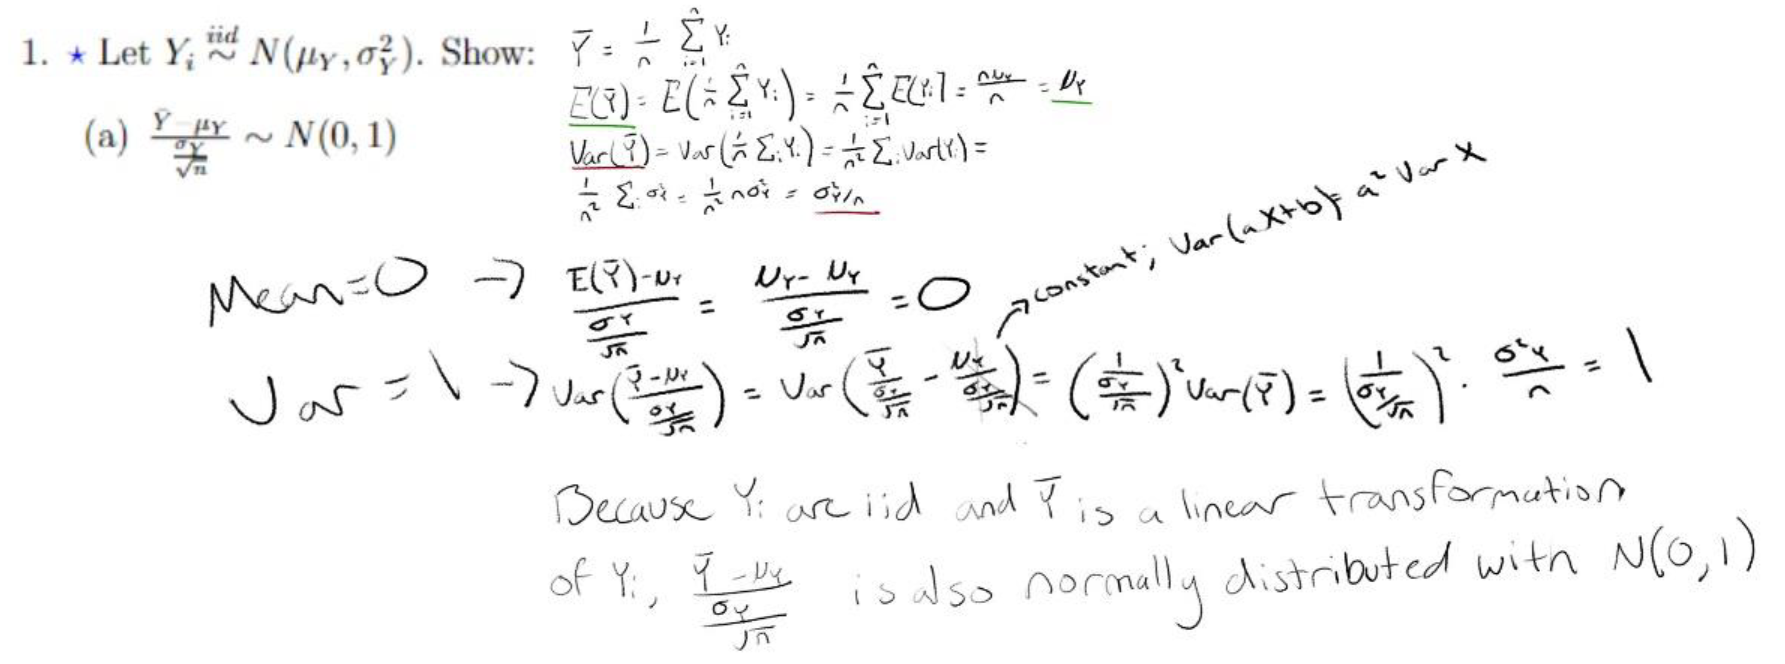 1. ★ Let Y_i \overset{iid}{\sim} N(μ_Y, σ_Y^2). Show:
(a) \frac{\bar{Y} - μ_Y}{\frac{σ_Y}{\sqrt{n}}} ∼ N(0, 1)
\bar{Y} = \frac{1}{n} \sum_{i=1}^{n} Y_i
E(\bar{Y}) = E(\frac{1}{n} \sum_{i=1}^{n} Y_i) = \frac{1}{n} \sum_{i=1}^{n} E[Y_i] = \frac{nμ_Y}{n} = μ_Y
Var(\bar{Y}) = Var(\frac{1}{n} Σ_i Y_i) = \frac{1}{n^2} Σ_i Var(Y_i) =
\frac{1}{n^2} Σ_i σ_Y^2 = \frac{1}{n^2} nσ_Y^2 = σ_Y^2/n
Mean=0 → \frac{E(\bar{Y}) - μ_Y}{\frac{σ_Y}{\sqrt{n}}} = \frac{μ_Y - μ_Y}{\frac{σ_Y}{\sqrt{n}}} = 0
constant; Var(aX+b) = a^2 Var X
Var = 1 → Var(\frac{\bar{Y} - μ_Y}{\frac{σ_Y}{\sqrt{n}}}) = Var(\frac{\bar{Y}}{\frac{σ_Y}{\sqrt{n}}} - \frac{μ_Y}{\frac{σ_Y}{\sqrt{n}}}) = (\frac{1}{\frac{σ_Y}{\sqrt{n}}})^2 Var(\bar{Y}) = (\frac{1}{σ_Y/\sqrt{n}})^2 · \frac{σ^2_Y}{n} = 1
Because Y_i are iid and \bar{Y} is a linear transformation
of Y_i, \frac{\bar{Y} - μ_Y}{\frac{σ_Y}{\sqrt{n}}} is also normally distributed with N(0,1)